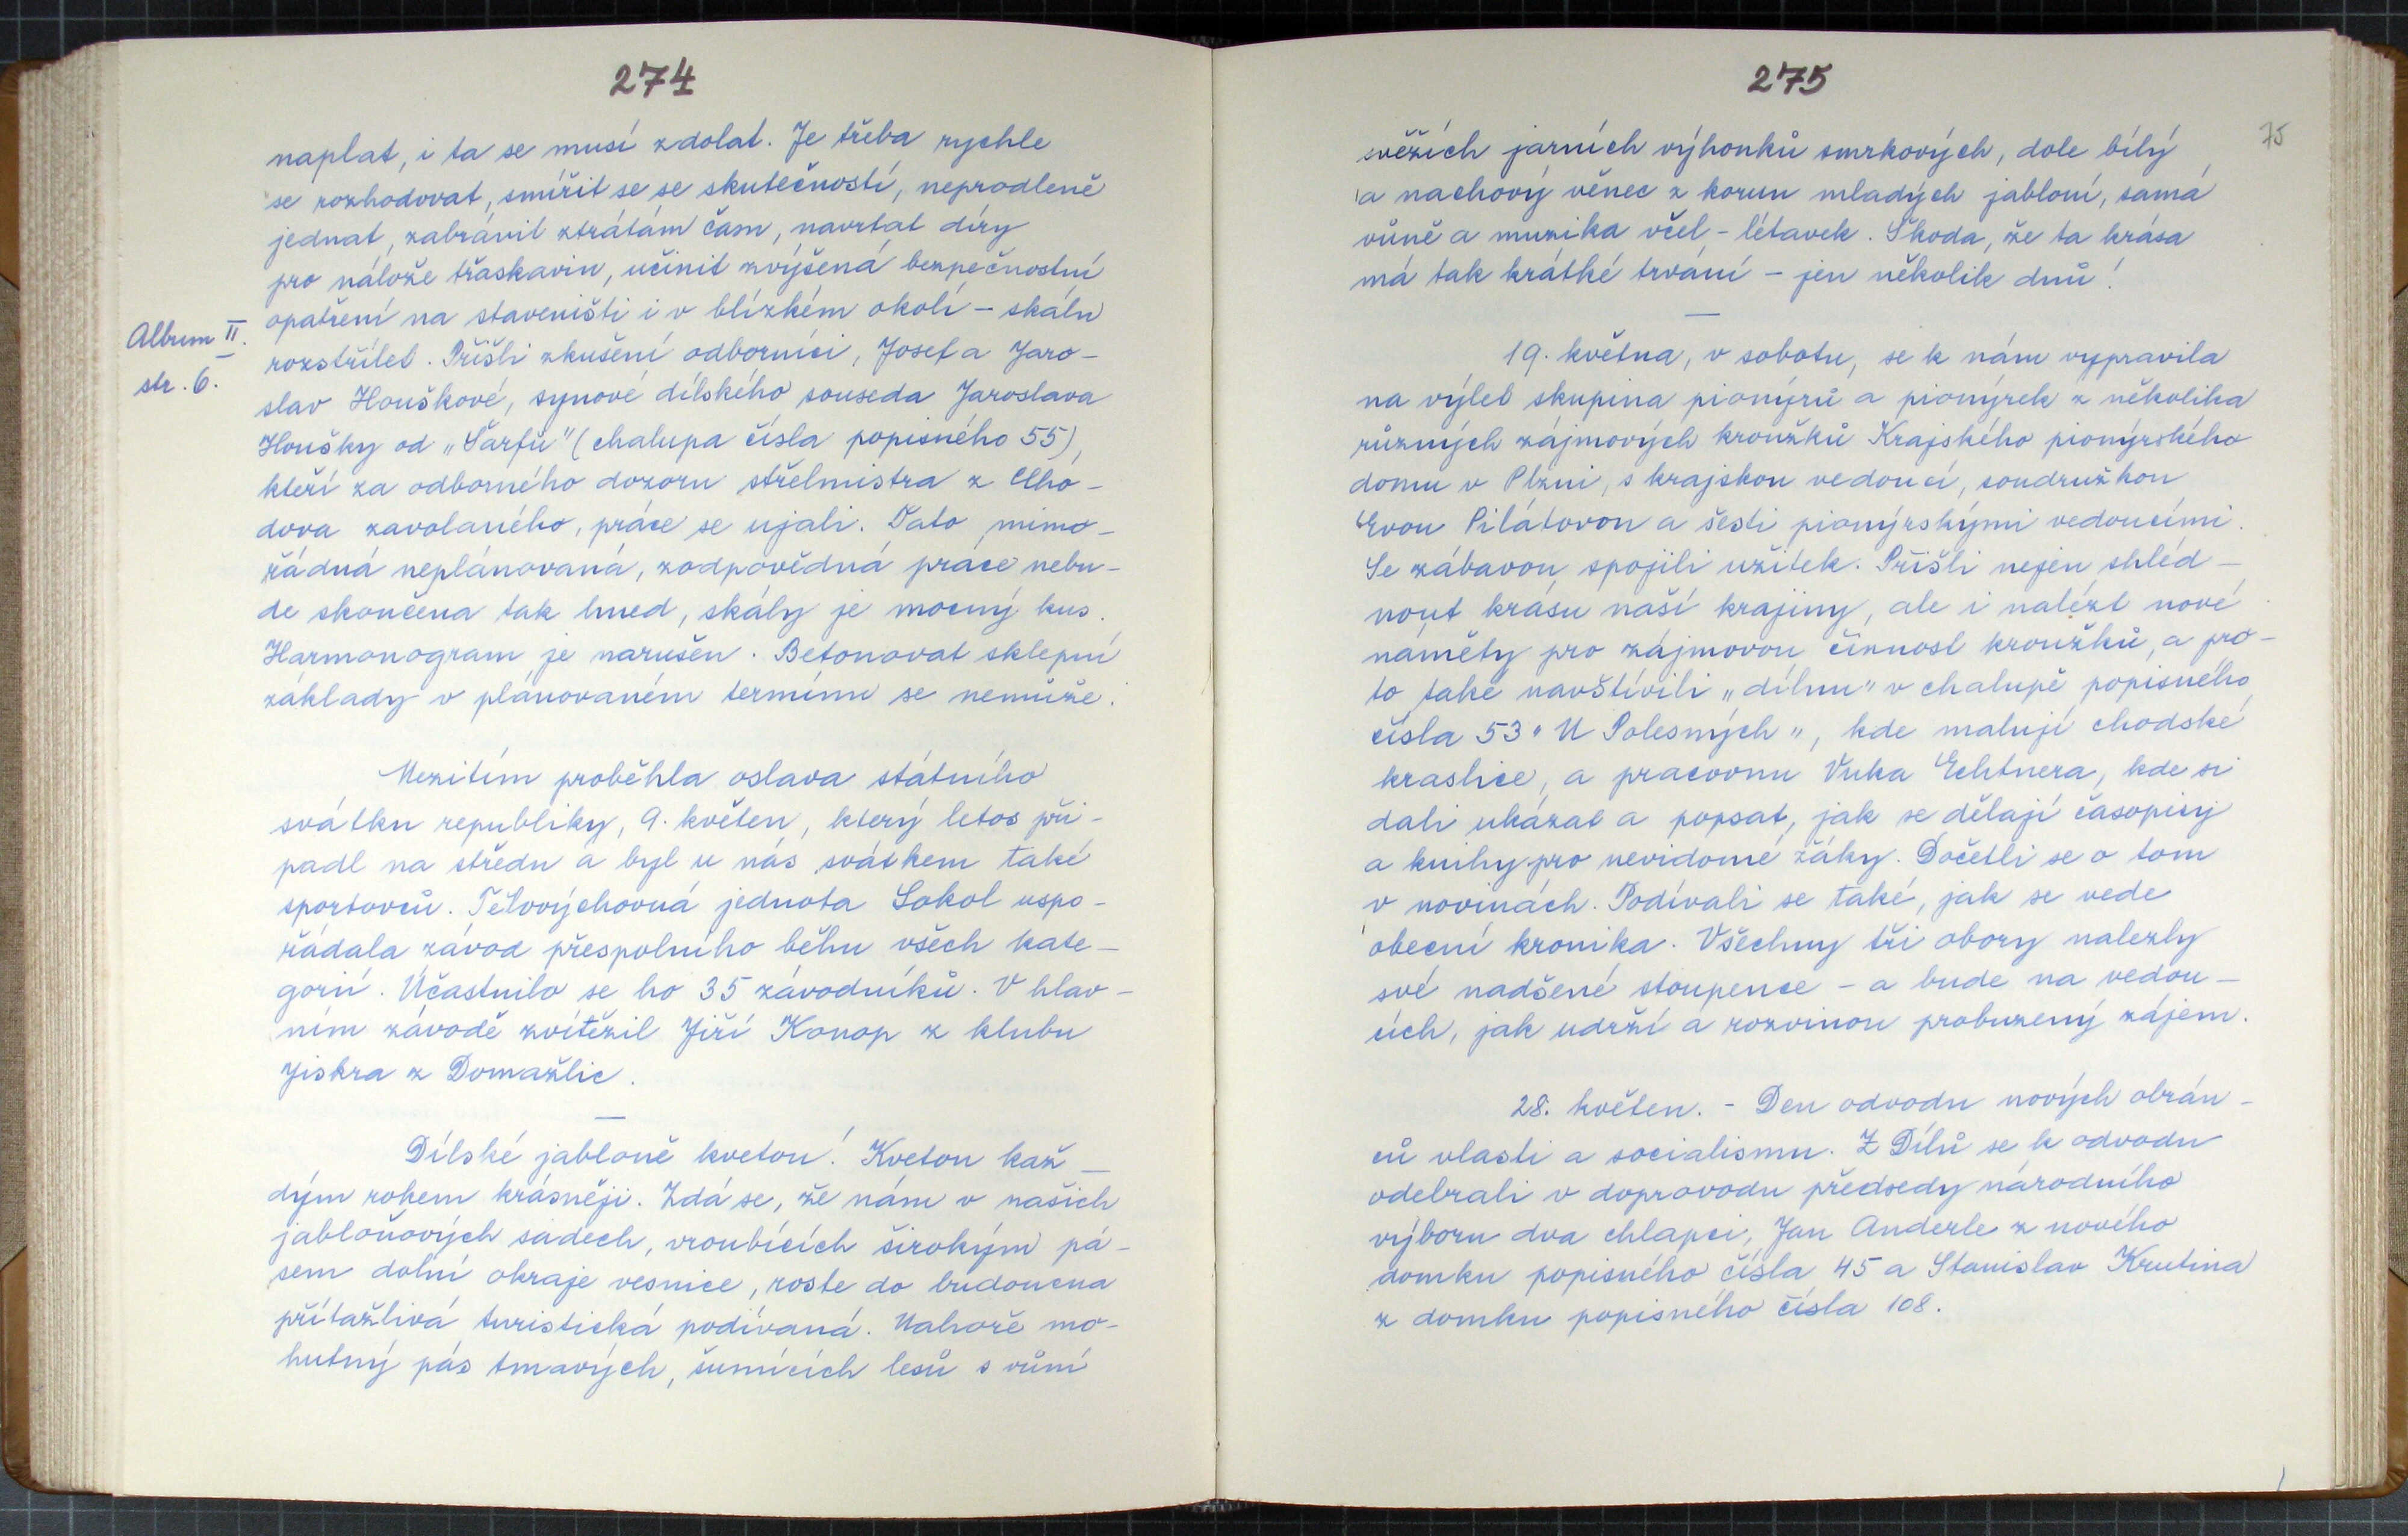 274
naplat, i ta se musí zdolat. Je třeba rychle
se rozhodovat, smířit se se skutečností, neprodleně
jednat, zabrávil ztrátám času, navrtat díry
pro nálože třaskavin, učinit zvýšená bezpečnostní
opatření na staveništi i v blízkém okolí – skálu
Album II.
rozstřílet. Přišli zkušení odborníci, Josef a Jaro-
str. 6.
slav Houškové, synové dílského souseda Jaroslava
Houšky od „Šarfů" (chalupa čísla popisného 55),
kteří za odborného dozoru střelmistra z Cho-
dova zavolaného, práce se ujali. Tato mimo-
řádná neplánovaná, zodpovědná práce nebu-
de skončena tak hned, skály je mocný kus.
Harmonogram je narušen. Betonovat sklepní
základy v plánovaném termínu se nemůže.
Mezitím proběhla oslava státního
svátku republiky, 9. květen, který letos při-
padl na středu a byl u nás svátkem také
sportovců. Tělovýchovná jednota Sokol uspo-
řádala závod přespolního běhu všech kate-
gorií. Účastnilo se ho 35 závodníků. V hlav-
ním závodě zvítězil Jiří Konop z klubu
Jiskra z Domažlic.
Dílské jabloně kvetou! Kvetou kaž-
dým rokem krásněji. Zdá se, že nám v našich
jabloňových sadech, vroubících širokým pá-
sem dolní okraje vesnice, roste do budoucna
přitažlivá turistická podívaná. Nahoře mo-
hutný pás tmavých, šumících lesů s vůní
275
75
svěžích jarních výhonků smrkových, dole bílý
a nachový věnec z korun mladých jabloní, samá
vůně a muzika včel – létavek. Škoda, že ta krása
má tak krátké trvání – jen několik dnů!
19. května, v sobotu, se k nám vypravila
na výlet skupina pionýrů a pionýrek z několika
různých zájmových kroužků Krajského pionýrského
domu v Plzni, s krajskou vedoucí, soudružkou
Evou Pilátovou a šesti pionýrskými vedoucími.
Se zábavou spojili užitek. Přišli nejen shléd-
nout krásu naší krajiny, ale i nalézt nové
naměty pro zájmovou činnost kroužků, a pro-
to také navštívili „dílnu" v chalupě popisného
čísla 53 "U Polesných", kde malují chodské
kraslice, a pracovnu Vuka Echtnera, kde si
dali ukázat a popsat, jak se dělají časopisy
a knihy pro nevidomé žáky. Dočetli se o tom
v novinách. Podívali se také, jak se vede
obecní kronika. Všechny tři obory nalezly
své nadšené stoupence – a bude na vedou-
cích, jak udrží a rozvinou probuzený zájem.
28. květen. – Den odvodu nových obrán-
ců vlasti a socialismu. Z Dílů se k odvodu
odebrali v doprovodu předsedy národního
výboru dva chlapci, Jan Anderle z nového
domku popisného čísla 45 a Stanislav Krutina
z domku popisného čísla 108.